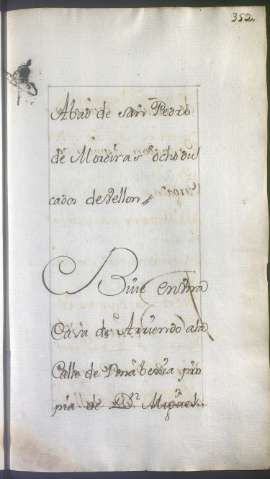 352.
Abad de San Pedro
de Moreira ocho du
cados de vellon
Bive en una
Casa de Arriendo a la
Calle de pro
pia de Dn